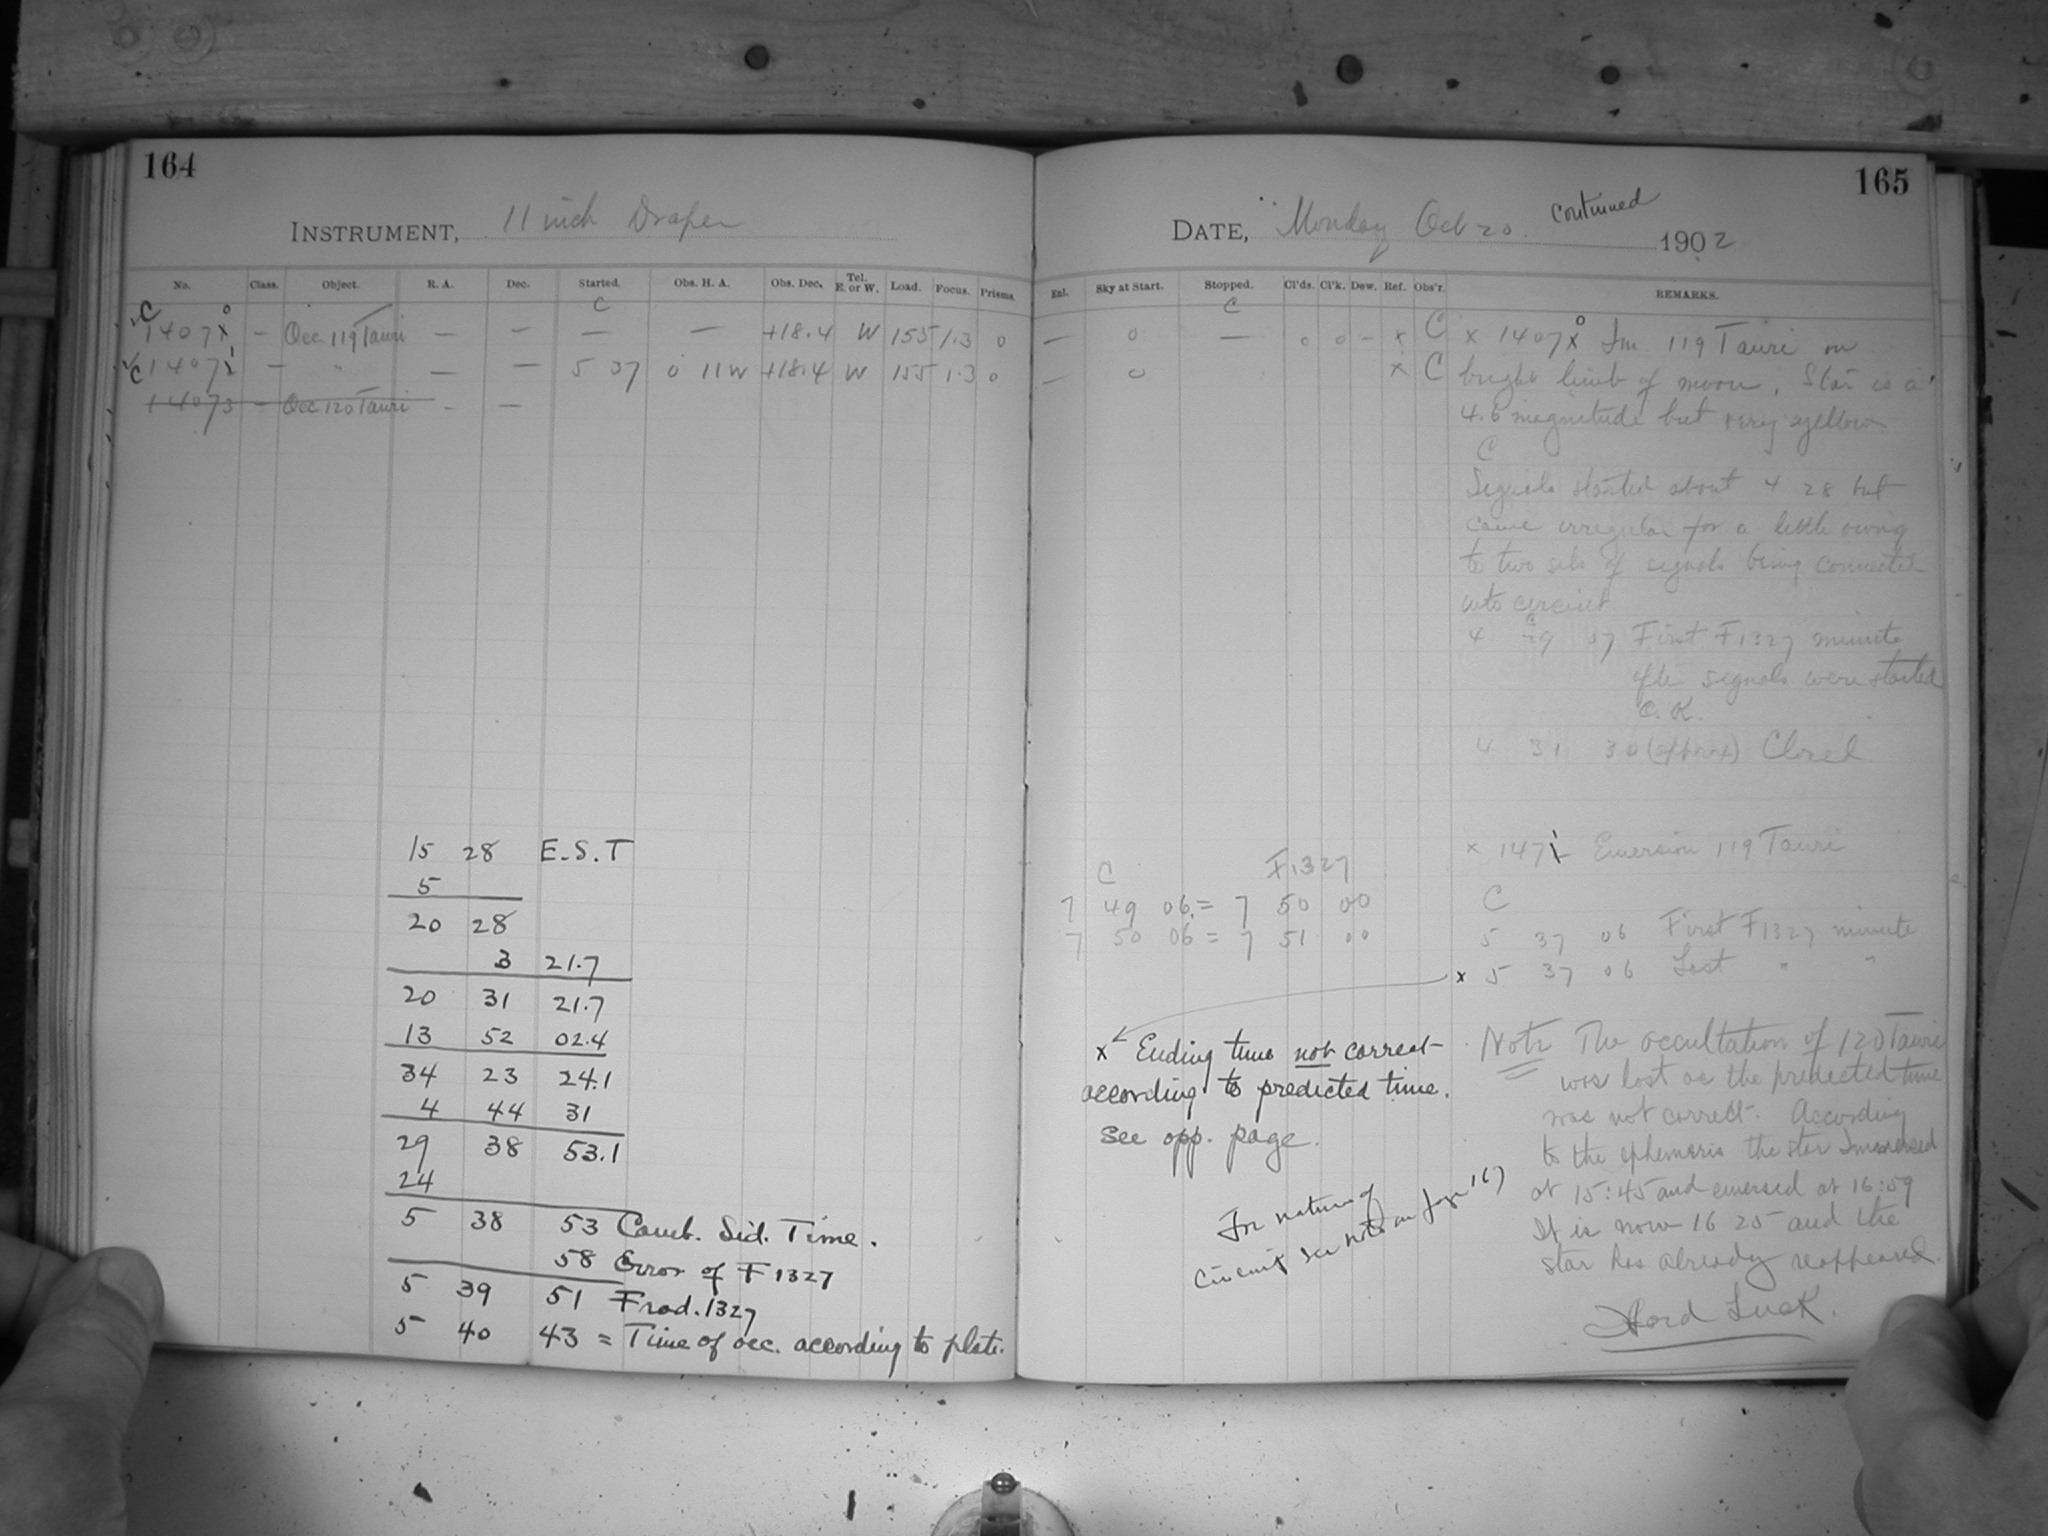 164
INSTRUMENT, 11 inch Draper
No. Class. Object. R. A. Dec. Started. Obs. H. A. Obs. Dec. Tel. E. or W. Load. Focus. Prisms.
C C
1407 0 — Occ. 119 Tauri — — — — +18.4 W 155 1.3 0
C 1407 1 — " — — 5 37 0 11W +18.4 W 155 1.3 0
14073 — Occ 120 Tauri — —
15 28 E.S.T
5
20 28
3 21.7
20 31 21.7
13 52 02.4
34 23 24.1
4 44 31
29 38 53.1
24
5 38 53 Camb. Sid. Time.
58 Error of F 1327
5 39 51 Frod. 1327
5 40 43 = Time of occ. according to plate.
165
DATE, Monday Oct 20. continued 1902
Enl. Sky at Start. Stopped. Cl'ds. Cl'k. Dew. Ref. Obs'r. REMARKS.
C
— 0 — 0 0 – x C x 1407 0 Im. 119 Tauri on
— 0 x C bright limb of moon. Star is a
4.6 magnitude but very yellow.
C
Signals started about 4 28 but
came irregular for a little owing
to two sets of signals being connected
into circuit.
4 29 07 First F1327 minute
after signals were started
O. K.
4 31 30 (approx) Closed
x 147 1 Emersion 119 Tauri
C F1327
7 49 06 = 7 50 00
7 50 06 = 7 51 00
C
5 37 06 First F1327 minute
x 5 37 06 Last " "
x Ending time not correct
according to predicted time.
See opp. page.
For nature of
circuit see note on page 167
Note The occultation of 120 Tauri
was lost as the predicted time
was not correct. According
to the ephemeris the star Immersed
at 15:45 and emersed at 16:59
It is now 16 25 and the
star has already reappeared.
Hard Luck.